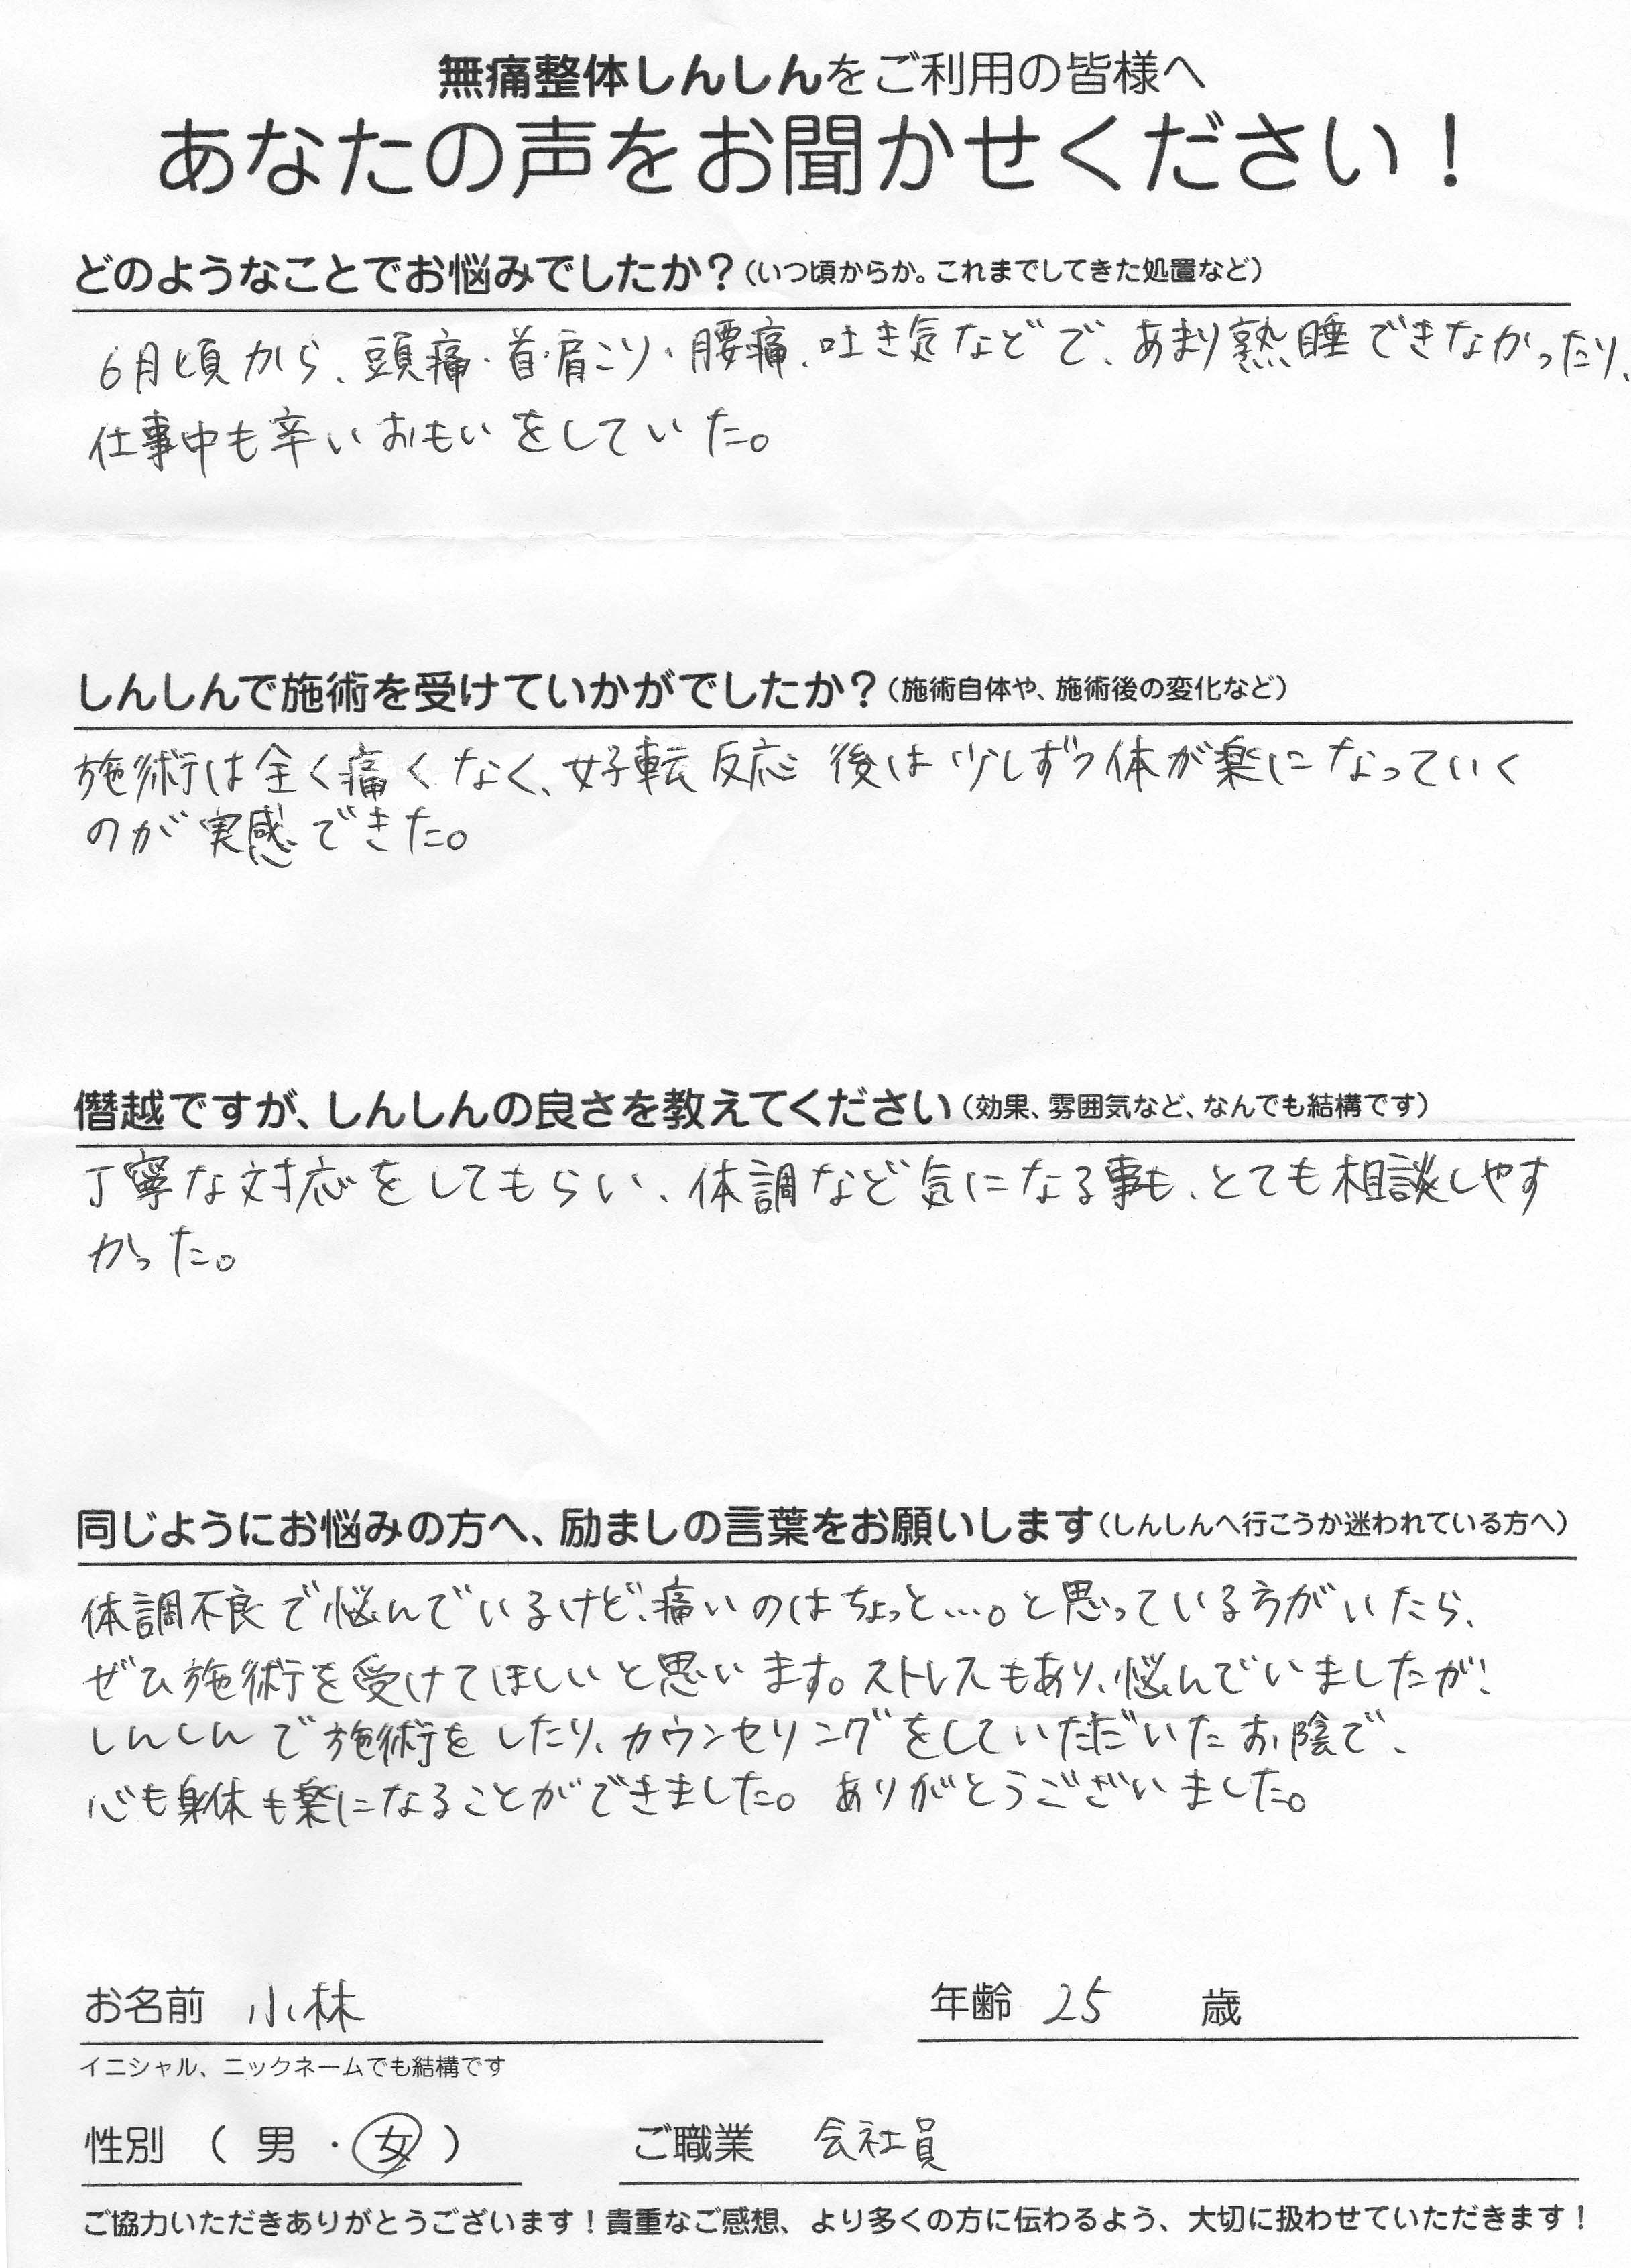 無痛整体しんしんをご利用の皆様へ
あなたの声をお聞かせください！
どのようなことでお悩みでしたか？（いつ頃からか。これまでしてきた処置など）
6月頃から、頭痛・首・肩こり・腰痛、吐き気などで、あまり熟睡できなかったり、
仕事中も辛いおもいをしていた。
しんしんで施術を受けていかがでしたか？（施術自体や、施術後の変化など）
施術は全く痛くなく、好転反応後は少しずつ体が楽になっていく
のが実感できた。
僭越ですが、しんしんの良さを教えてください（効果、雰囲気など、なんでも結構です）
丁寧な対応をしてもらい、体調など気になる事も、とても相談しやす
かった。
同じようにお悩みの方へ、励ましの言葉をお願いします（しんしんへ行こうか迷われている方へ）
体調不良で悩んでいるけど、痛いのはちょっと…。と思っている方がいたら、
ぜひ施術を受けてほしいと思います。ストレスもあり、悩んでいましたが、
しんしんで施術をしたり、カウンセリングをしていただいたお陰で、
心も身体も楽になることができました。ありがとうございました。
お名前 小林
年齢 25 歳
イニシャル、ニックネームでも結構です
性別 （ 男 ・ 女 ）
ご職業 会社員
ご協力いただきありがとうございます！貴重なご感想、より多くの方に伝わるよう、大切に扱わせていただきます！